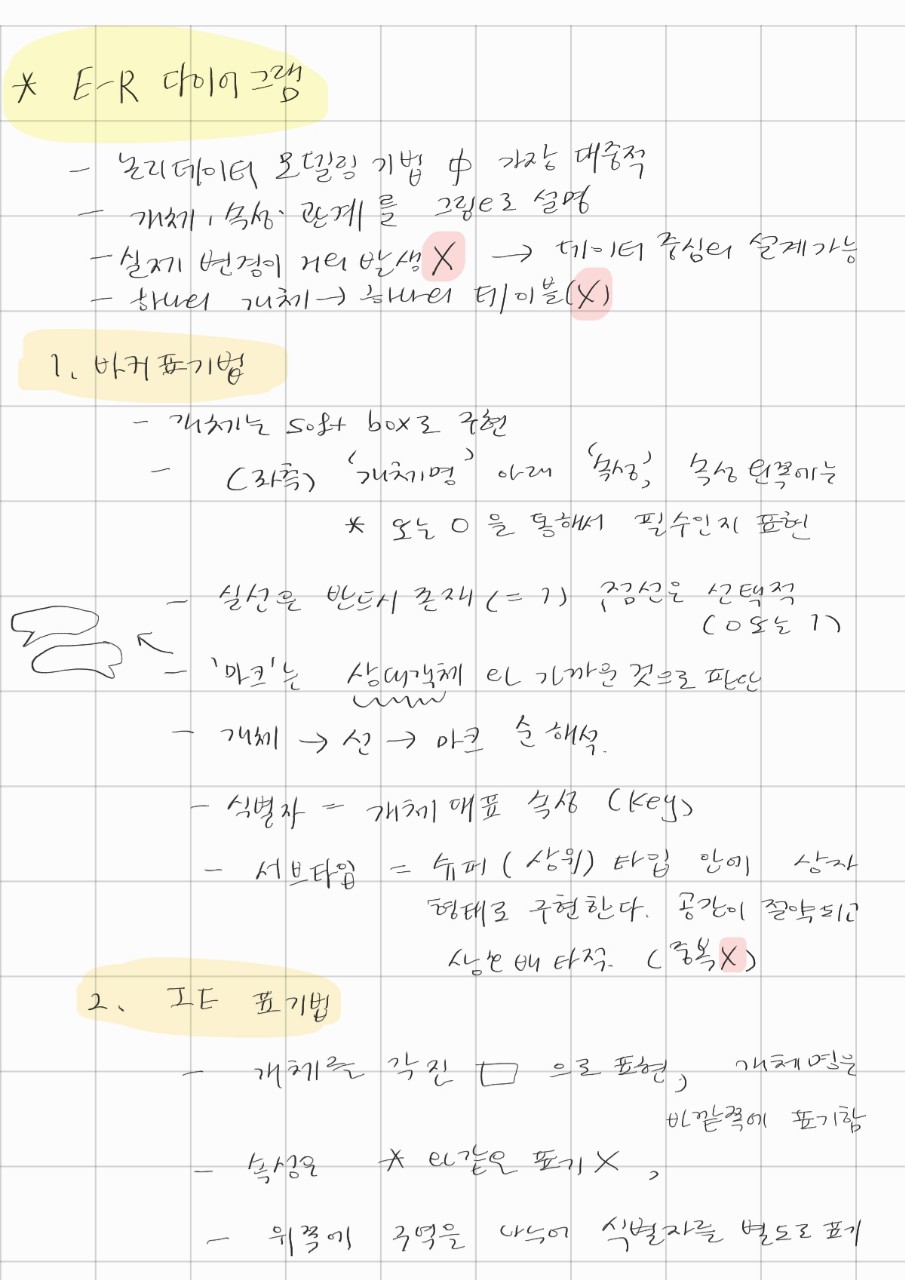 * E-R 다이어그램
- 논리데이터 모델링 기법 中 가장 대중적
- 개체, 속성, 관계를 그림으로 설명
- 실제 변경이 거의 발생 X → 데이터 중심의 설계가능
- 하나의 개체 → 하나의 테이블(X)
1. 바커표기법
- 개체는 soft box로 구현
- (좌측) '개체명' 아래 '속성', 속성 왼쪽에는
* 또는 O 을 통해서 필수인지 표현
- 실선은 반드시 존재 (= 1) 점선은 선택적
(0 또는 1)
- '마크'는 상대객체에 가까운 것으로 판단
- 개체 → 선 → 마크 순 해석.
- 식별자 = 개체 대표 속성 (Key)
- 서브타입 = 슈퍼(상위) 타입 안에 상자
형태로 구현한다. 공간이 절약되고
상호배타적. (중복X)
2. IE 표기법
- 개체를 각진 □ 으로 표현, 개체명은
바깥쪽에 표기함
- 속성은 * 와같은 표기 X,
- 위쪽에 구역을 나누어 식별자를 별도로 표기